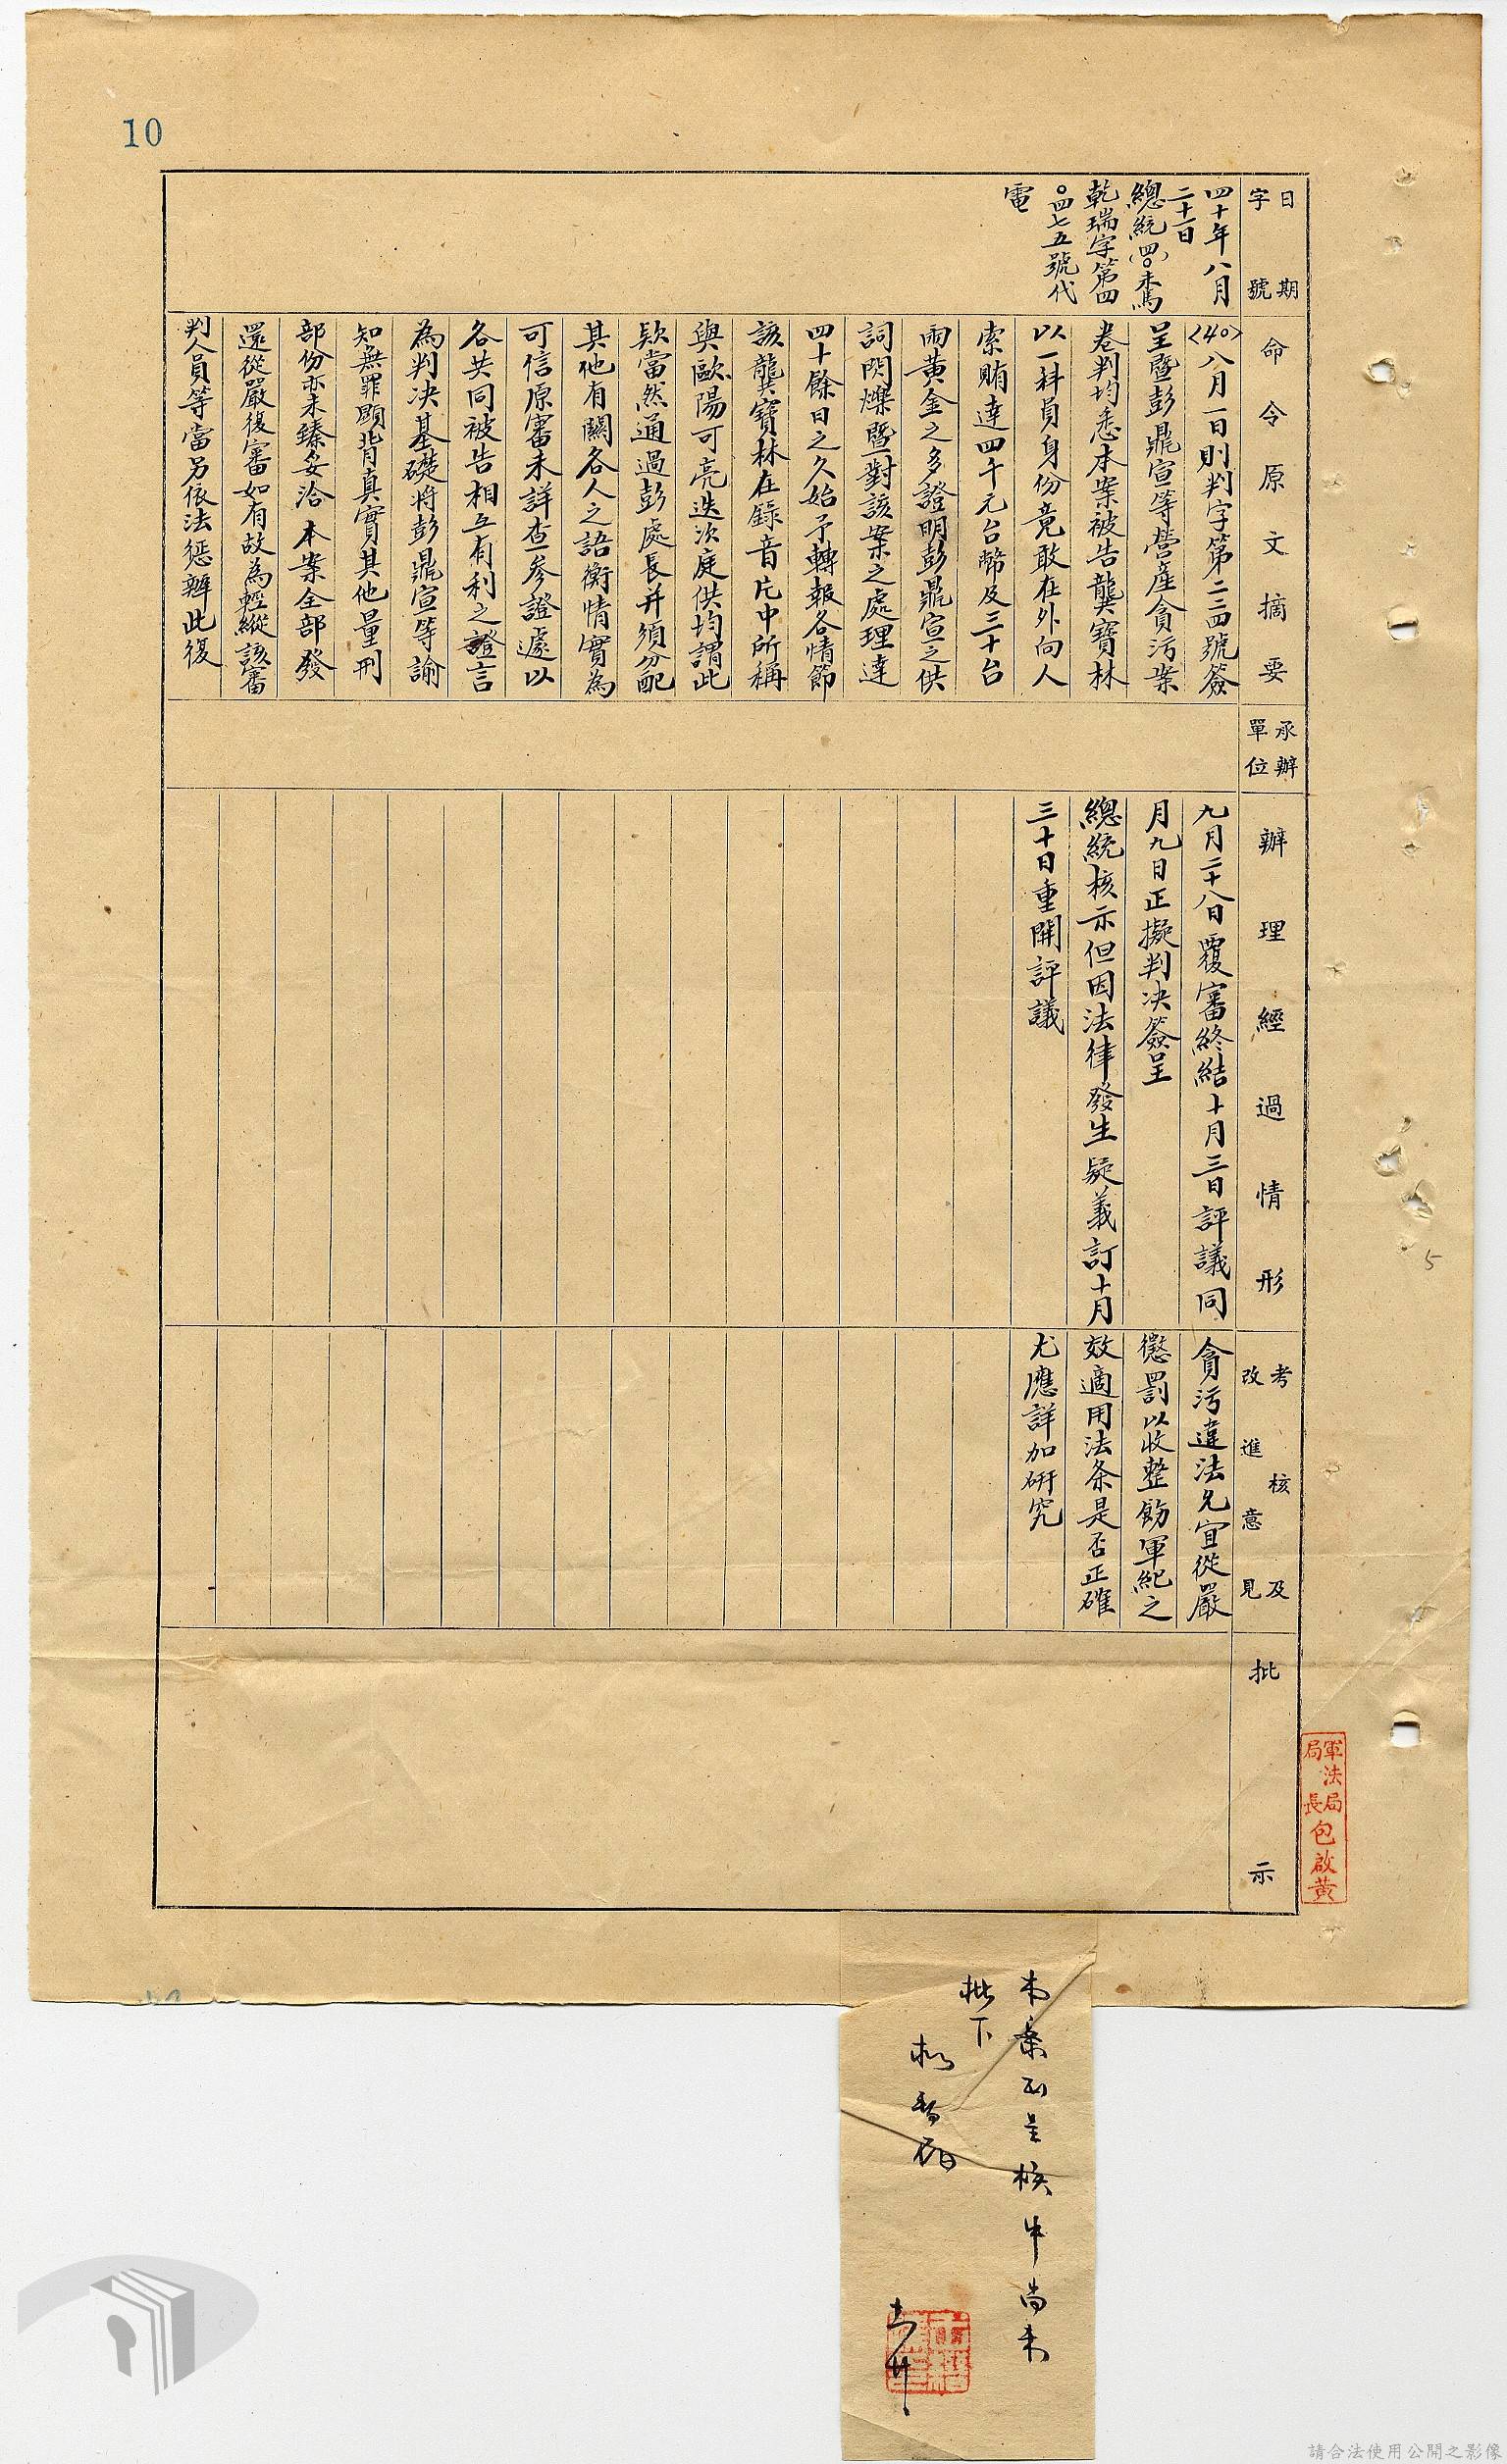 10
日期
字號
四十年八月
二十一日
總統(四〇)未馬
乾瑞字第四
〇四七五號代
電
命令原文摘要
<40>八月一日則判字第二二四號簽
呈暨彭鼎宣等營產貪污案
卷判均悉本案被告龔寶林
以一科員身份竟敢在外向人
索賄達四千元台幣及三十台
兩黃金之多證明彭鼎宣之供
詞閃爍暨對該案之處理達
四十餘日之久始予轉報各情節
該龔寶林在錄音片中所稱
與歐陽可亮迭次庭供均謂此
欵當然通過彭處長并須分配
其他有關各人之語衡情實為
可信原審未詳查參證遽以
各共同被告相互有利之證言
為判決基礎將彭鼎宣等諭
知無罪顯背真實其他量刑
部份亦未臻妥洽本案全部發
還從嚴復審如有故為輕縱該審
判人員等當另依法懲辦此復
承辦
單位
辦理經過情形
九月二十八日覆審終結十月三日評議同
月九日正擬判決簽呈
總統核示但因法律發生疑義訂十月
三十日重開評議
考核及
改進意見
貪污違法允宜從嚴
懲罰以收整飭軍紀之
效適用法条是否正確
尤應詳加研究
批示
軍法局
局長
包啟黃
5
本案正呈核中尚未
批下
擬暫存
請合法使用公開之影像